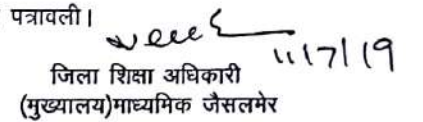 पत्रावली।
11/7/19
जिला शिक्षा अधिकारी
(मुख्यालय)माध्यमिक जैसलमेर